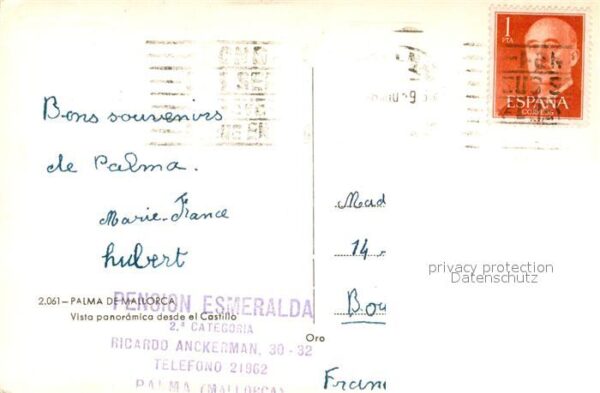 Bons souvenirs
de Palma.
Marie-France
hubert
2.061 – PALMA DE MALLORCA
Vista panorámica desde el Castillo
PENSION ESMERALDA
2.ª CATEGORIA
RICARDO ANCKERMAN, 30 - 32
TELEFONO 21962
PALMA (MALLORCA)
Oro
1
PTA
ESPAÑA
CORREOS
Mad
14
Bou
Fran
privacy protection
Datenschutz